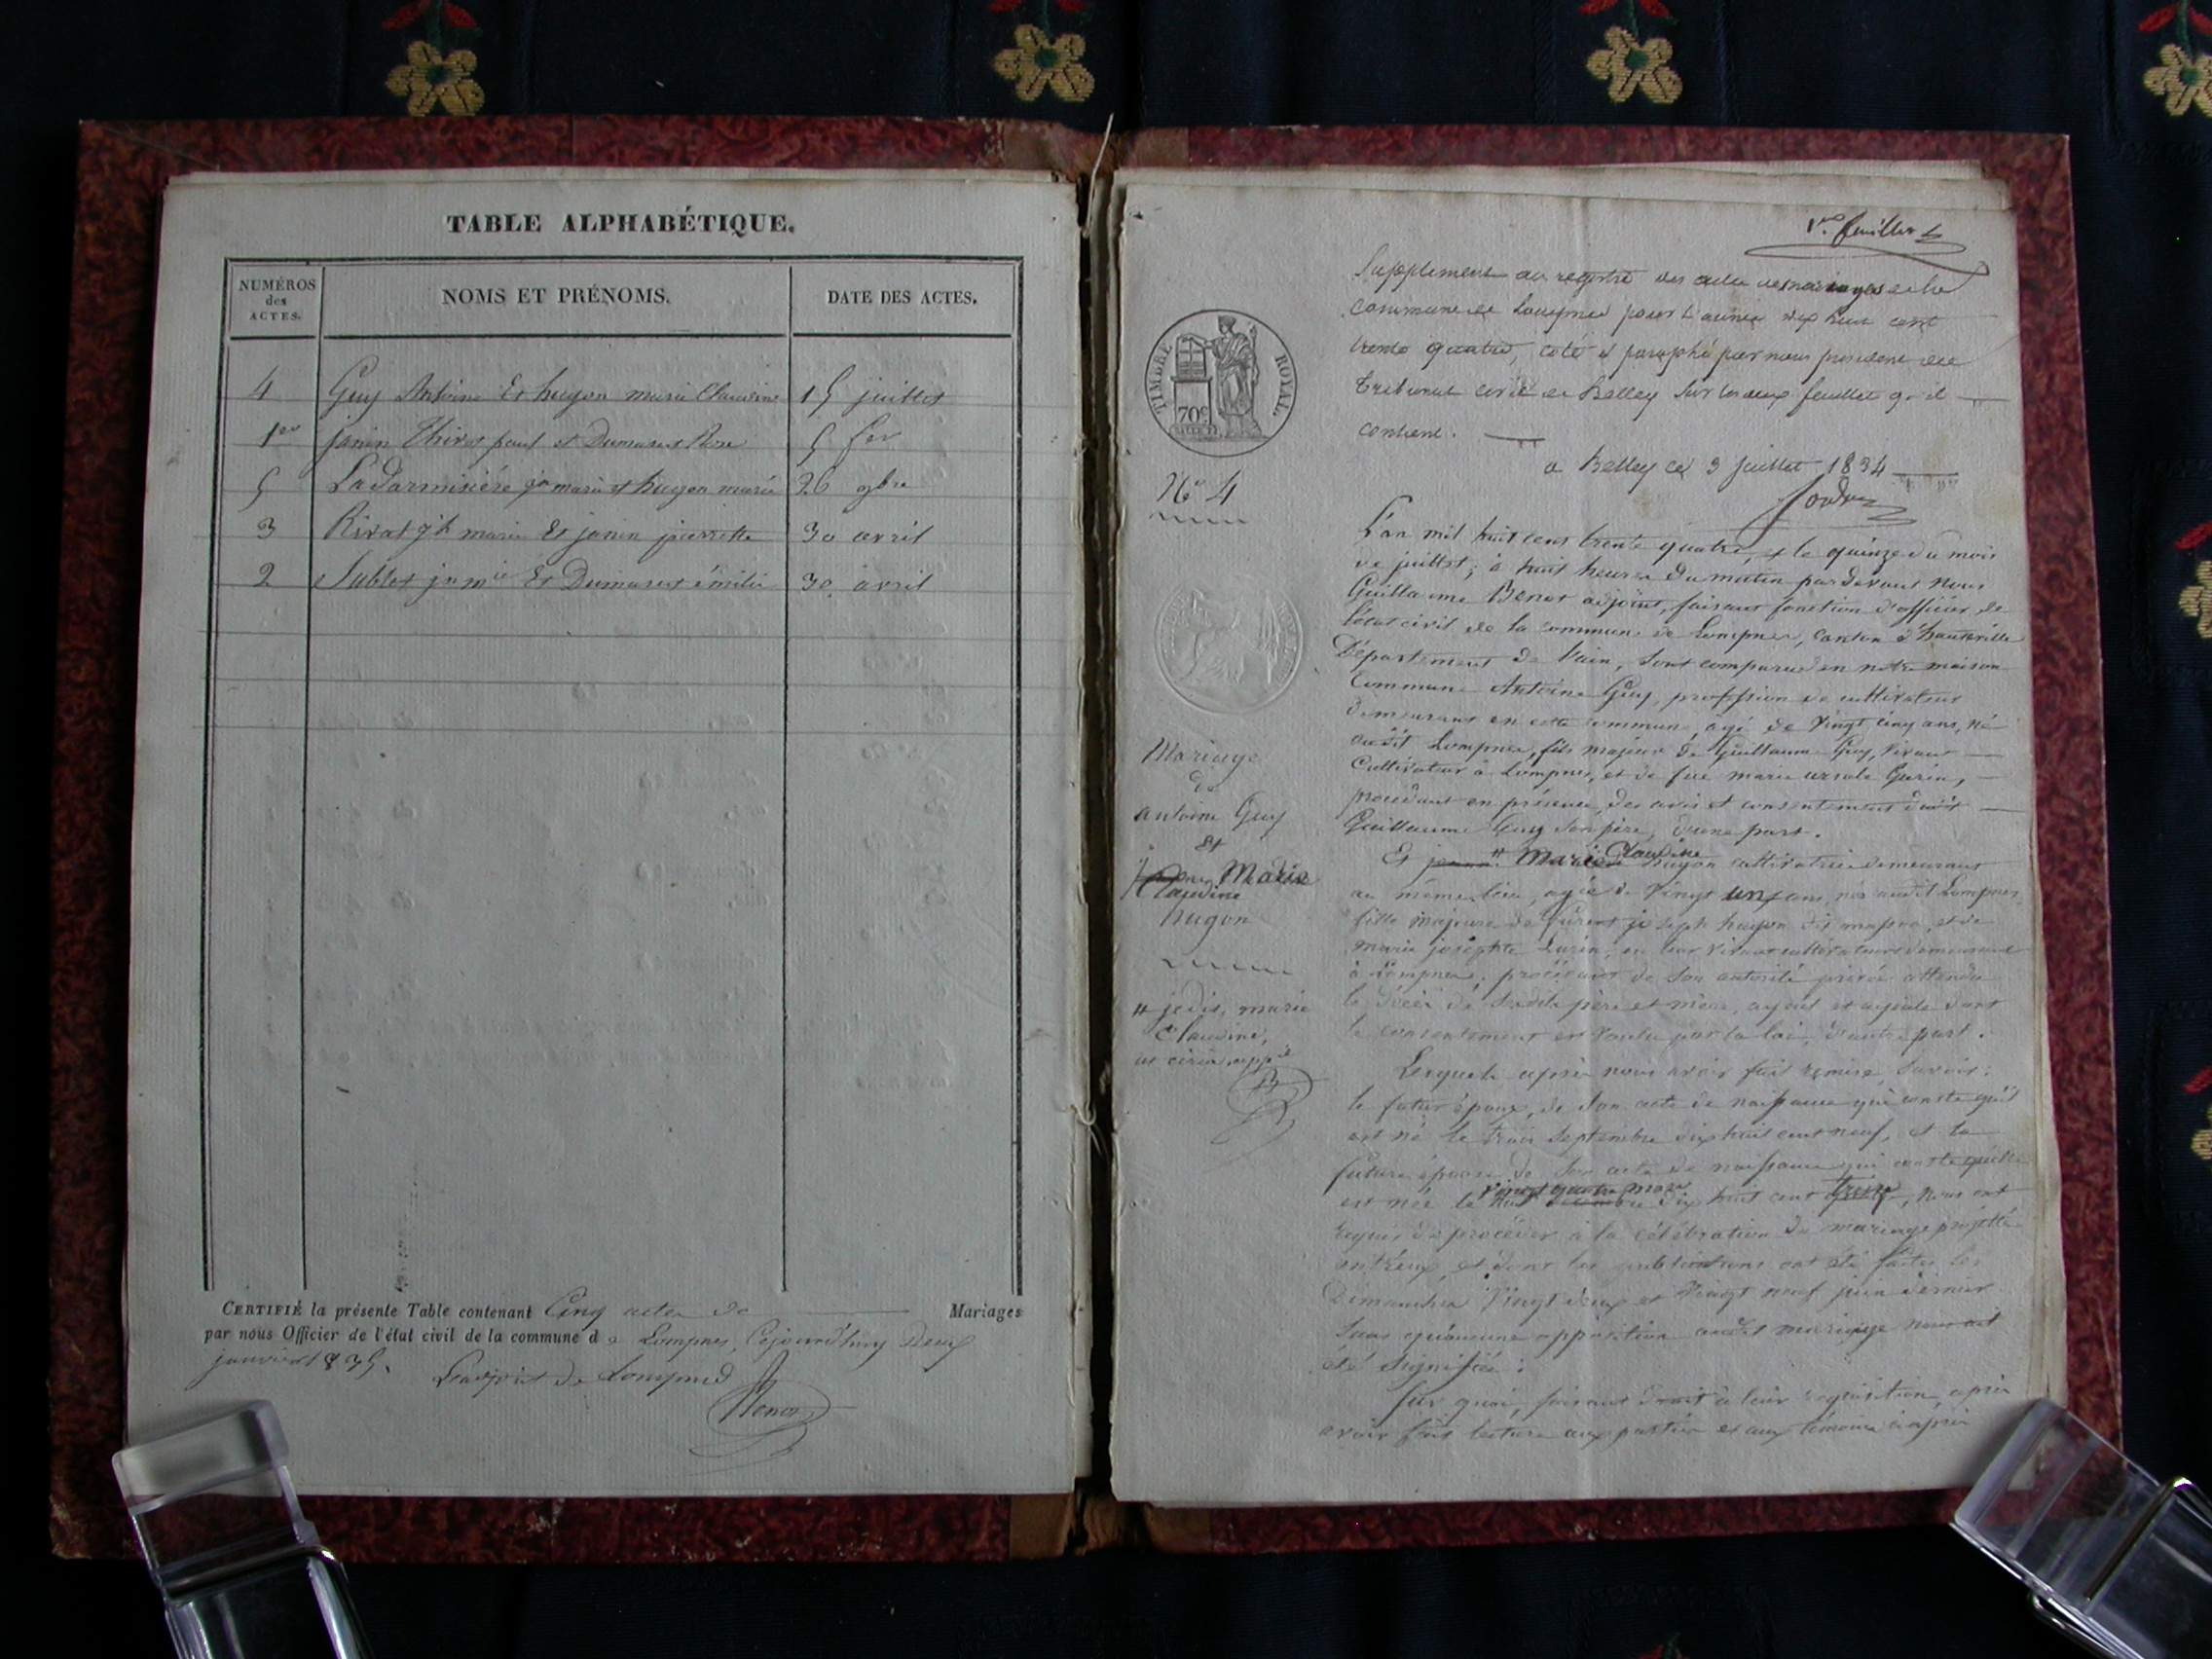 TABLE ALPHABÉTIQUE.
NUMÉROS
des
ACTES.
NOMS ET PRÉNOMS.
DATE DES ACTES.
4 Guy Antoine Et hugon marie Claudine 15 juillet
1er janin paul et Dumarest Rose 5 fer
5 Ladarmisiére jn marie et hugon marie 26 9bre
3 Rivat jh marie Et janin pierrette 30 avril
2 Sublet jn mie Et Dumarest émilie 30 avril
CERTIFIÉ la présente Table contenant Cinq actes de Mariages
par nous Officier de l'état civil de la commune de Lompnes, Cejourd'huy deux
janvier 1835.
L'adjoint de Lompnes
Benot
1er feuillet
Supplement au registre des actes de mariages de la
commune de Lompnes pour l'année dix huit cent
trente quatre, coté et paraphé par nous president du
tribunal civil de Belley sur les deux feuillets qu'il
contient.
a Belley le 3 juillet 1834
TIMBRE ROYAL.
70c
No 4
Mariage
de
antoine Guy
Et
Marie
Claudine
hugon
# je dis, marie
Claudine,
B
L'an mil huit cent trente quatre, et le quinze du mois
de juillet, à huit heures du matin pardevant Nous
Guillaume Benot adjoint, faisant fonction d'officier de
l'état civil de la commune de Lompnes, canton d'hauteville
Département de l'ain, sont comparus en notre maison
Commune Antoine Guy, profession de cultivateur
demeurant en cette commune, agé de Vingt cinq ans, né
audit Lompnes, fils majeur de Guillaume Guy, vivant
Cultivateur à Lompnes, et de feue marie ursule Gurin,
procédant en présence, des avis et consentement dudit
Guillaume Guy son père, d'une part.
Et # Marie Claudine hugon cultivatrice demeurant
au même lieu, agée de Vingt un ans, née audit Lompnes,
fille majeure de joseph hugon dit et de
marie josephte Gurin, en leur vivant cultivateurs demeurant
à Lompnes, procédant de son autorité privée attendu
le décès de sesdits père et mère, ayeul et ayeule dont
le consentement est voulu par la loi, d'autre part.
Lesquels après nous avoir fait remise, Savoir:
le futur époux, de son acte de naissance qui conste qu'il
est né le trois Septembre dix huit cent neuf, et la
future épouse de son acte de naissance qui conste qu'elle
est née le vingt quatre mars dix huit cent treize, nous ont
requis de procéder à la célébration du mariage projetté
entr'eux, et dont les publications ont été faites les
Dimanches Vingt deux et Vingt neuf juin dernier
Sans qu'aucune opposition audit mariage nous ait
été signifiée:
Sur quoi, faisant droit à leur requisition, après
avoir fait lecture aux parties et aux témoins ci après